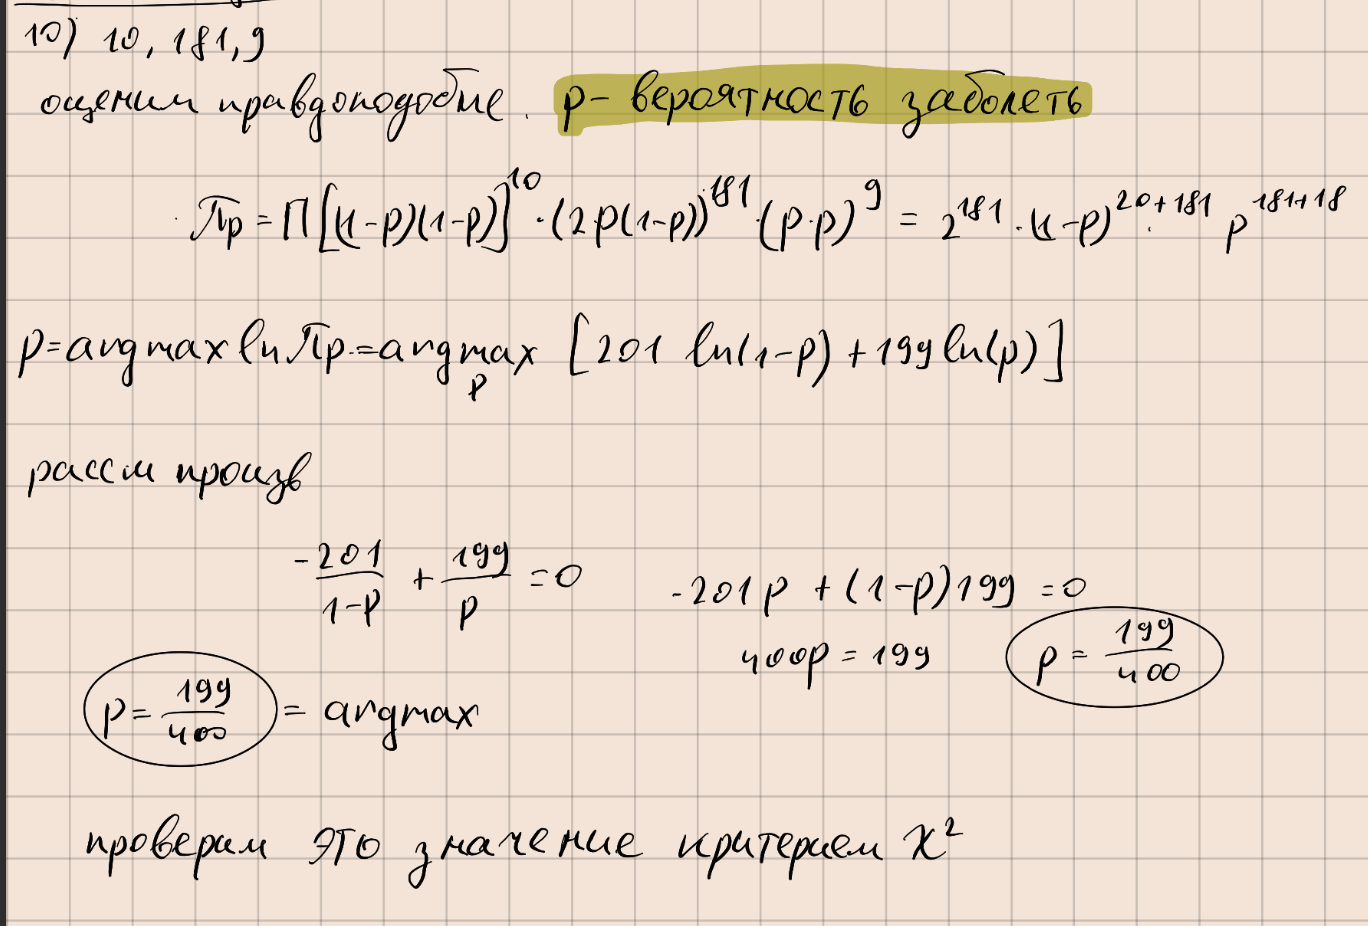 10) 10, 181, 9
оценим правдоподобие. p - вероятность заболеть
Пр = П [(1-p)(1-p)]^10 · (2·p(1-p))^181 · (p·p)^9 = 2^181 · (1-p)^20+181 · p^181+18
p = argmax ln Пр. = argmax_p [201 ln(1-p) + 199 ln(p)]
рассм произв
-201/1-p + 199/p = 0
-201p + (1-p)199 = 0
400p = 199
p = 199/400
p = 199/400 = argmax
проверим это значение критерием χ²